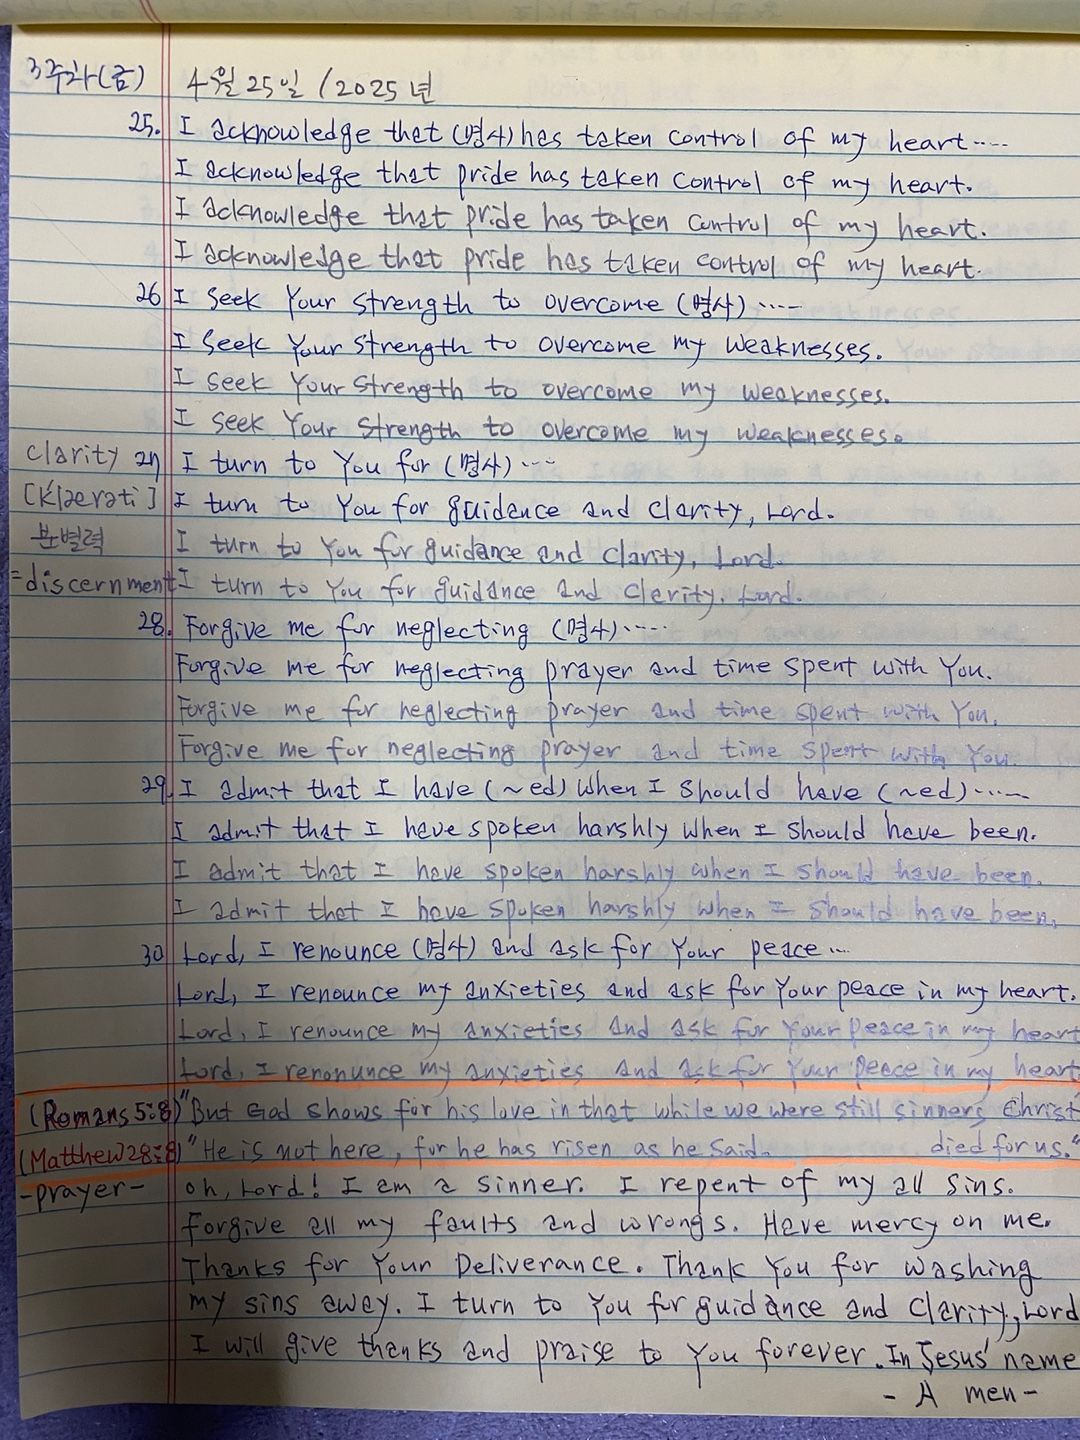 3주차(금) 4월 25일 / 2025년
25. I acknowledge that (명사) has taken control of my heart....
I acknowledge that pride has taken control of my heart.
I acknowledge that pride has taken control of my heart.
I acknowledge that pride has taken control of my heart.
26 I seek Your strength to overcome (명사) .....
I seek Your strength to overcome my weaknesses.
I seek Your strength to overcome my weaknesses.
I seek Your strength to overcome my weaknesses.
clarity 27 I turn to You for (명사) ...
[klaerəti] I turn to You for guidance and clarity, Lord.
분별력 I turn to You for guidance and clarity, Lord.
=discernment I turn to You for guidance and clarity, Lord.
28. Forgive me for neglecting (명사).....
Forgive me for neglecting prayer and time spent with You.
Forgive me for neglecting prayer and time spent with You.
Forgive me for neglecting prayer and time spent with You.
29. I admit that I have (~ed) when I should have (~ed)......
I admit that I have spoken harshly when I should have been.
I admit that I have spoken harshly when I should have been.
I admit that I have spoken harshly when I should have been.
30 Lord, I renounce (명사) and ask for Your peace...
Lord, I renounce my anxieties and ask for Your peace in my heart.
Lord, I renounce my anxieties and ask for Your peace in my heart
Lord, I renonunce my anxieties and ask for Your peace in my heart
(Romans 5:8) "But God shows for his love in that while we were still sinners, Christ
died for us."
(Matthew 28:8) "He is not here, for he has risen as he said.
-prayer- oh, Lord! I am a sinner. I repent of my all sins.
Forgive all my faults and wrongs. Have mercy on me.
Thanks for Your Deliverance. Thank You for washing
my sins away. I turn to You for guidance and clarity, Lord
I will give thanks and praise to You forever. In Jesus' name
- A men -